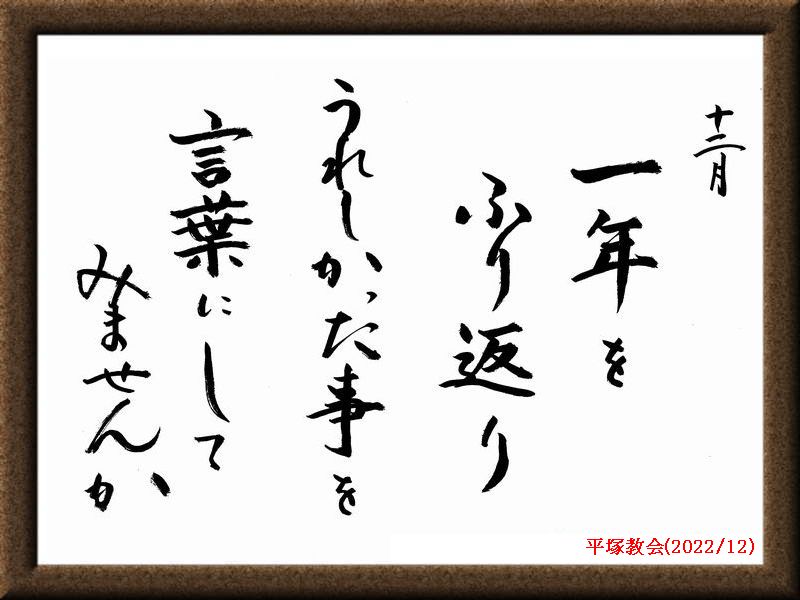 十二月
一年を
ふり返り
うれしかった事を
言葉にして
みませんか
平塚教会(2022/12)